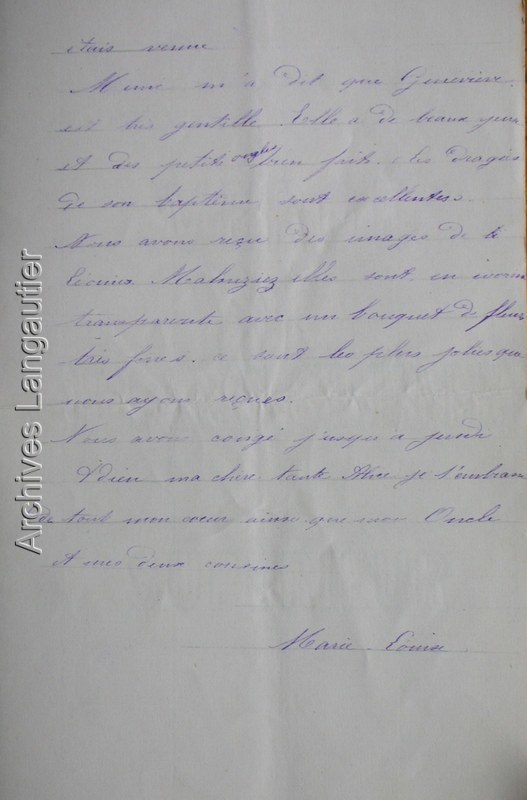 étais venue
m'a dit que Geneviève
est très gentille. Elle a de beaux yeux
et des petits ongles bien faits. Les dragées
de son baptême sont excellentes.
Nous avons reçu des images de
elles sont en ivoire
transparente avec un bouquet de fleurs
très fines. ce sont les plus jolies que
nous ayons reçues.
Nous avons congé jusqu'à jeudi
Adieu ma chère tante Alice je t'embrasse
de tout mon coeur ainsi que mon Oncle
et mes deux cousines
Marie Louise
Archives Langautier